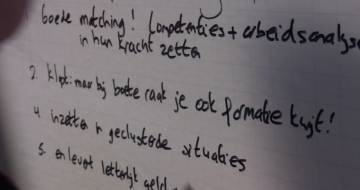 boete matching! Competenties + arbeidsanalyse
in hun kracht zetten
2. Klopt: maar bij boete raak je ook formatie kwijt!
4. inzetten in geclusterde situaties
5. en levert letterlijk geld